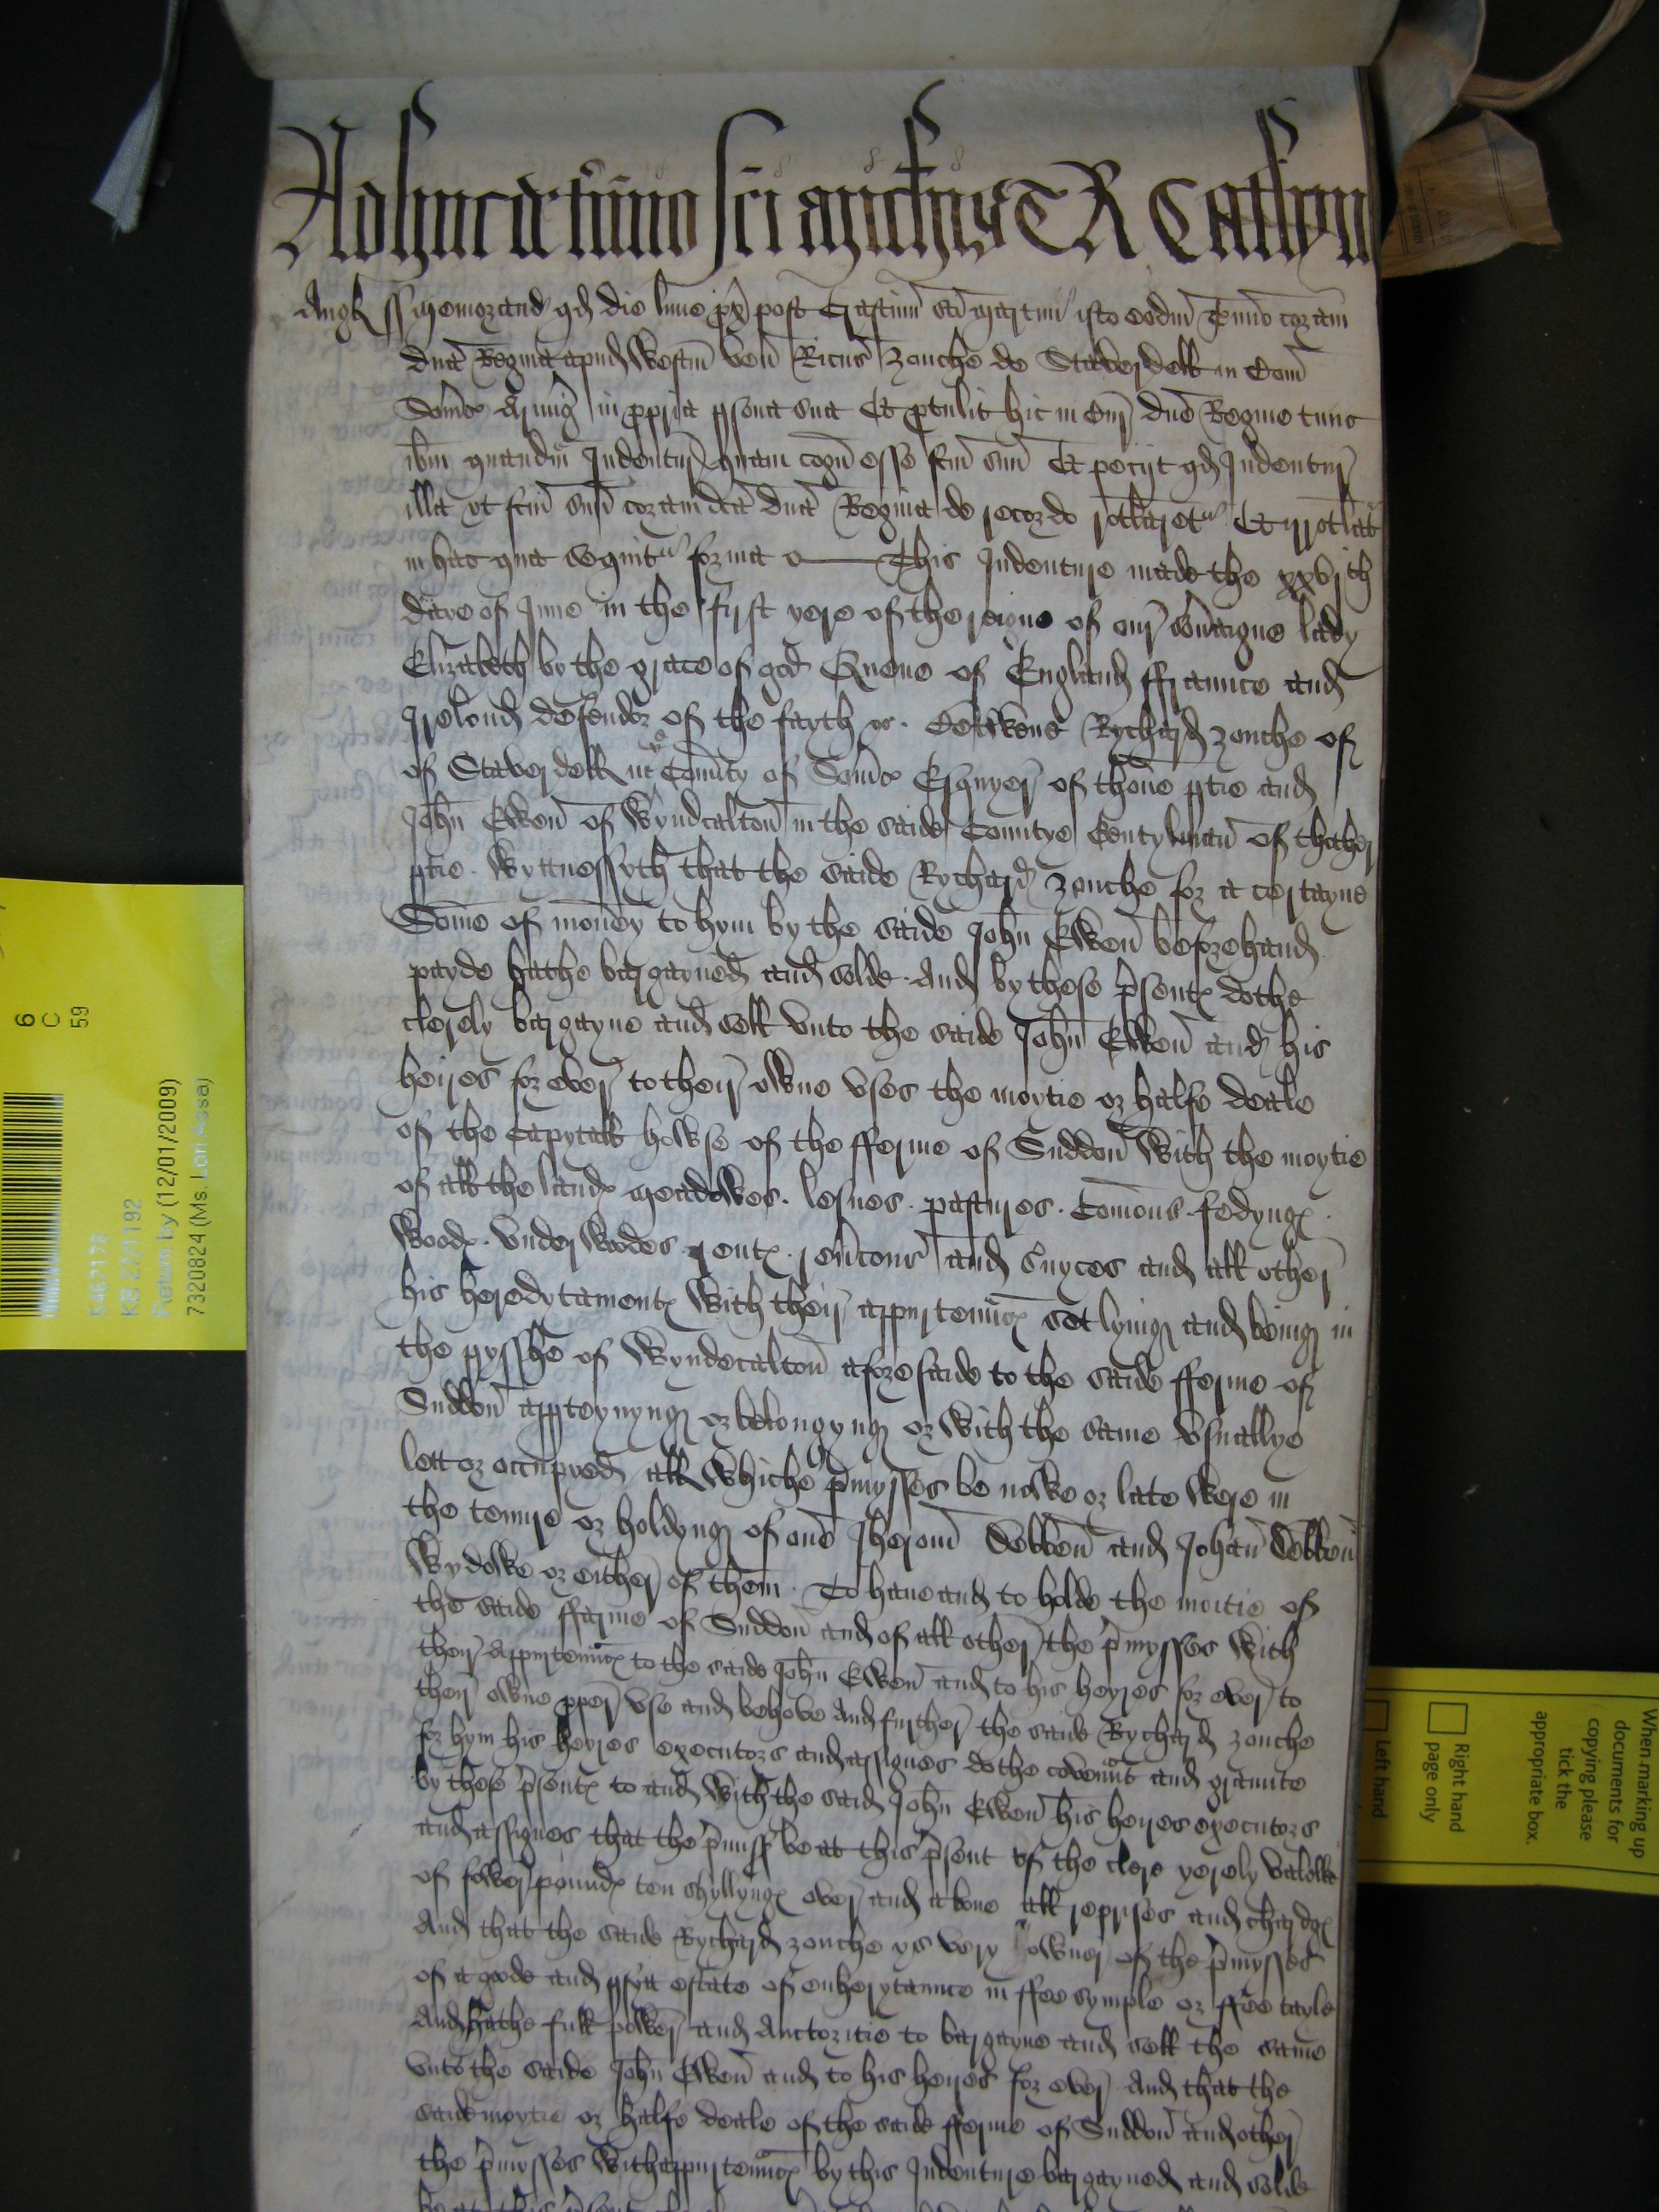 Adhuc de t'mino sci Michis T R Catlyn
Angl ss Memorand qd die lune px post Crastinu sci Martini isto eodm Termio coram
dna Regina apud Westm ven Ricus Zouche de Staverdell in Com
Soms Armig in ppria psona sua Et ptulit hic in Cur dne Regine tunc
ibm quandm Indentur quam cogn esse fcm suu Et petijt qd Indentur
illa vt fcm suu coram dca dna Regina de recordo irrotlaret Et irrotlat
in hac qua sequit forma This Indenture made the xxvjth
daye of June in the first yere of the reigne of our Soveaigne lady
Elizabeth by the grace of god Quene of England ffraunce and
Irelond defendor of the fayth &c. Betwene Rychard Zouche of
of Staverdell in ye Countty of Soms Esquyer of thone ptie and
John Ewen of Wyncalton in the saide Countye Gentylman of thother
ptie. Wyttnessyth that the saide Rychard Zouche for a certayne
Some of money to hym by the saide John Ewen beforehand
payde hathe bargayned and solde. And by these psents dothe
clerely bargayne and sell vnto the saide John Ewen and his
heires for ever to their owne vses the moytie or halfe deale
of the Capytall howse of the fferme of Suddon with the moytie
of all the lands meadowes. lesues. pastures. Comons. fedyngs.
woods. vnderwoodes rents. reucons and suyces and all other
his heredytaments with their appurtenncs set lying and being in
the pysshe of Wyndecalton aforesaide to the saide fferme of
Suddon appteynyng or belongyng or with the same vsuallye
lett or occupyed all whiche pmysses be nowe or late were in
the tenure or holdyng of one Jherom Dobben and Johan Dobben
Wydowe or either of them. To haue and to holde the moitie of
the saide ffarme of Suddon and of all other the pmysses with
their Appurtenncs to the saide John Ewen and to his heyres for ever to
their owne pper vse and behove And further the saide Rychard Zouche
for hym his heyres executors and assignes dothe covennt and graunte
by these psents to and with the said John Ewen his heires executors
and assignes that the pmiss be at this psent of the clere yerely valewe
of fower pounds ten shyllyngs over and above all reprises and chardgs
And that the saide Rychard Zouche ys very owner of the pmysses
of a goode and pfyt estate of enherytaunce in ffee symple or ffee tayle
And hathe full power and Auctoritie to bargayne and sell the same
vnto the saide John Ewen and to his heires for ever And that the
saide moytie or halfe deale of the saide fferme of Suddon and other
the pmysses with appurtenncs by this Indenture bargayned and solde
6
C
59
5467178
KB 27/1192
Return by (12/01/2009)
7320824 (Ms. Lori Assa)
When marking up
documents for
copying please
tick the
appropriate box.
Right hand
page only
Left hand